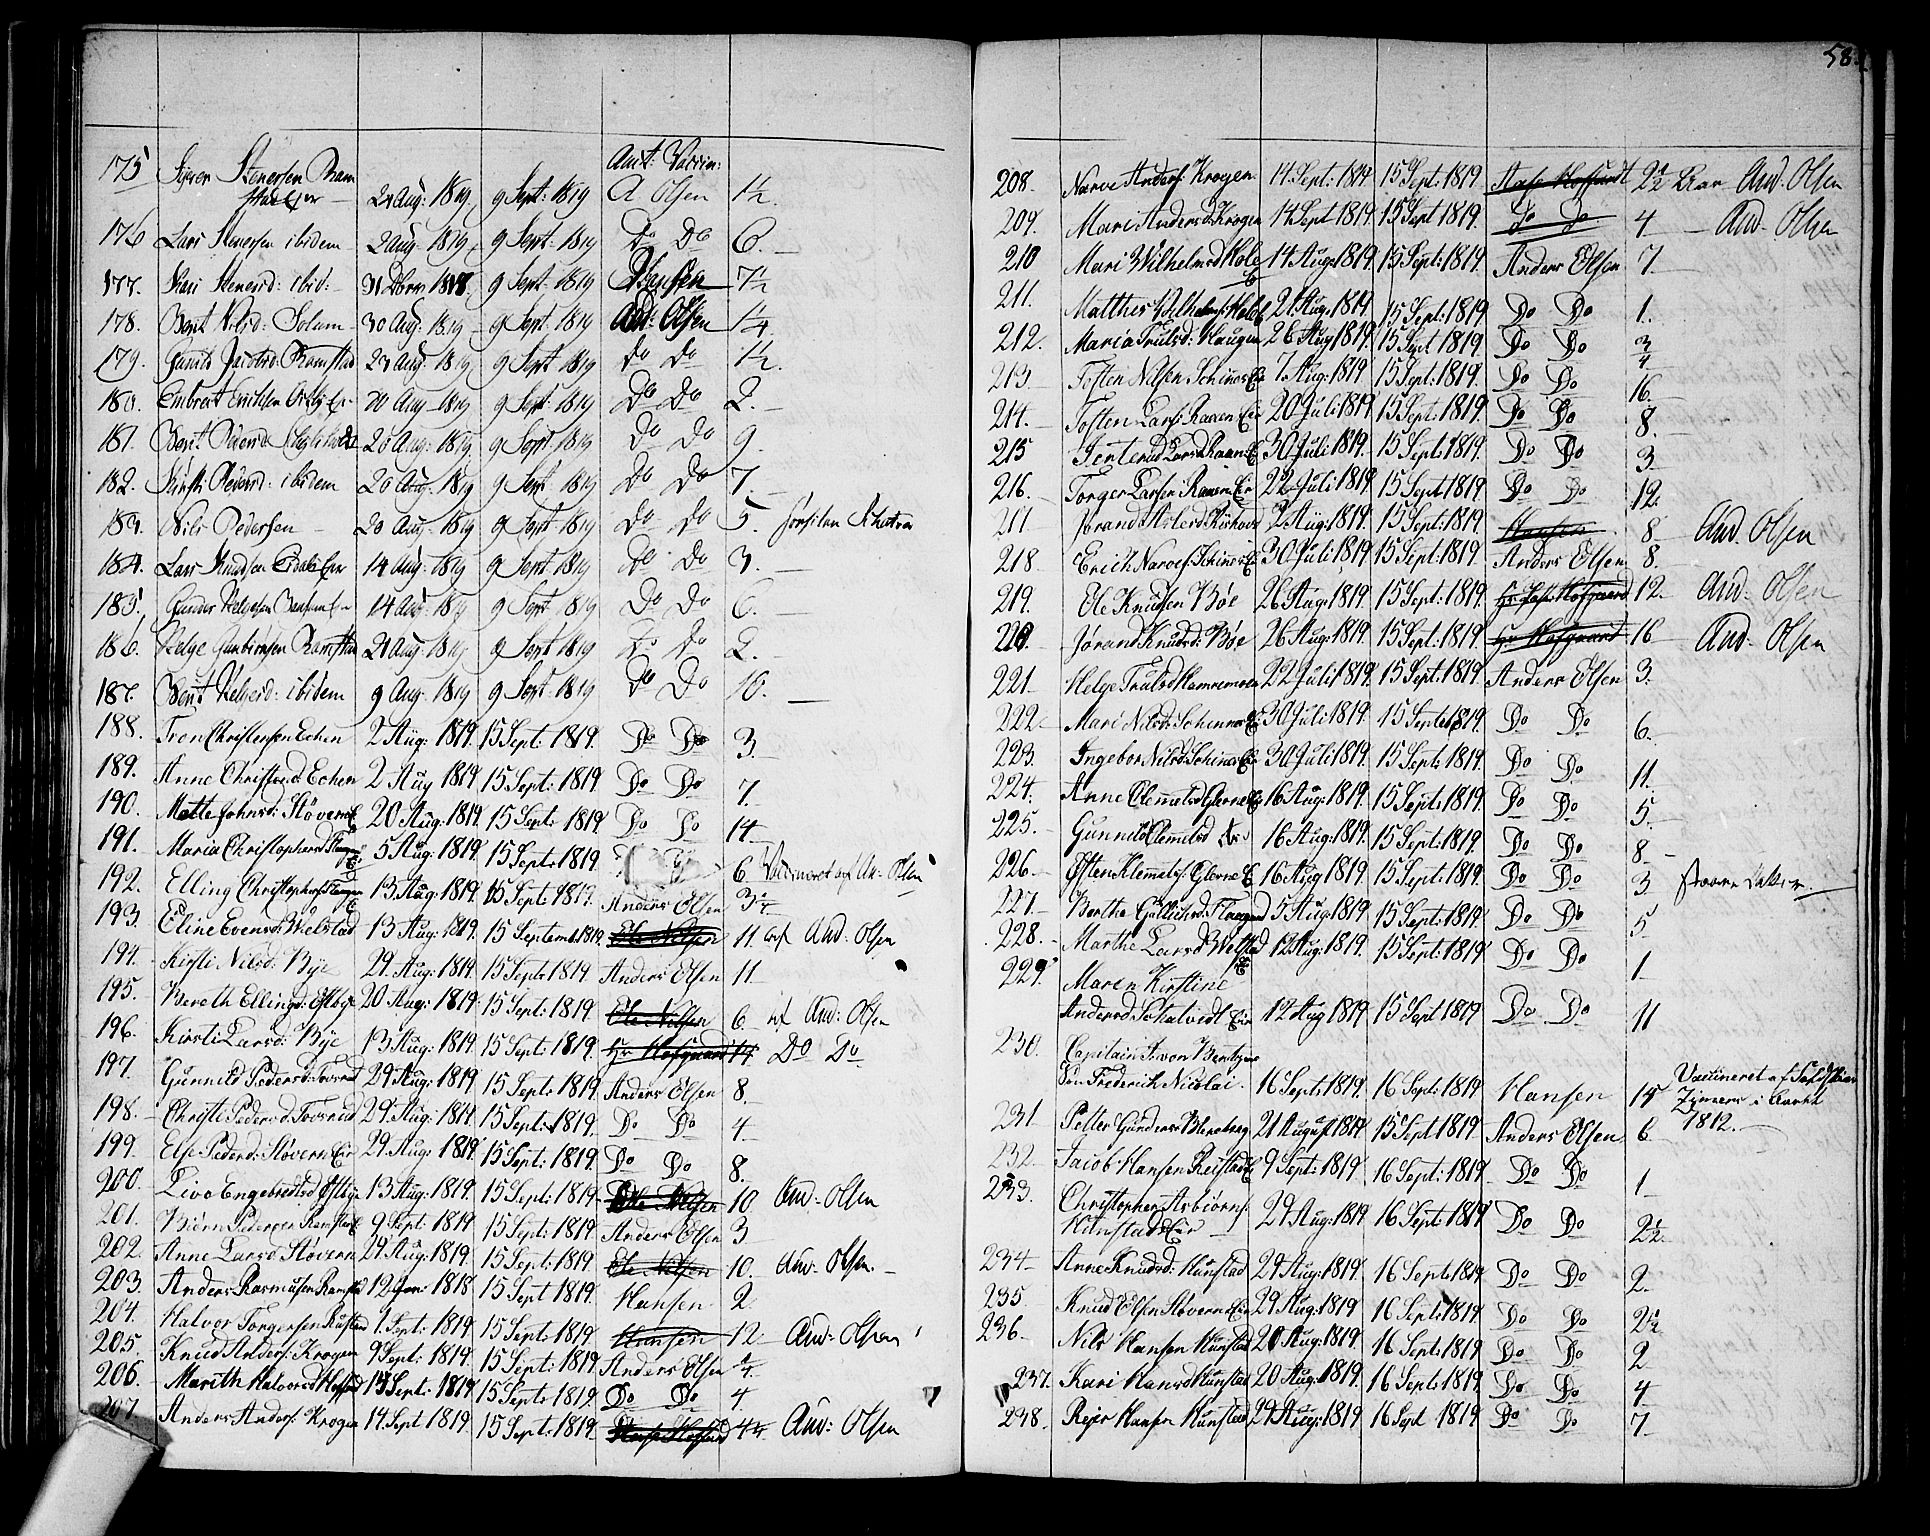 58.
Amt: Vaccin:
175 Siver Stenersen Ram
stad Eier 24 Aug: 1819 9 Sept: 1819 A Olsen 1½.
176 Lars Stenersen ibidem 2 Aug: 1819 9 Sept: 1819 Do Do 6.
177. Kari Stenersd: ibid: 31 Dbr 1818 9 Sept. 1819 Hansen 7½
178. Berit Nilsd: Solum 30 Aug: 1819 9 Sept: 1819 And: Olsen 1¼
179. Gunild Jacobsd: Ramstad 24 Aug: 1819 9 Sept 1819 Do Do 1½.
180. Embret Erichsen 20 Aug 1819 9 Sept: 1819 Do Do 2.
181. Berit Pedersd 20 Aug: 1819 9 Sept 1819 Do Do 9.
182. Kirsti Pedersd: ibidem 20 Aug: 1819 9 Sept 1819 Do Do 7.
183. Nils Pedersen 20 Aug: 1819 9 Sept 1819 Do Do 5.
184. Lars Knudsen 14 Aug: 1819 9 Sept 1819 Do Do 3.
185. Gunder Helgesen 14 Aug 1819 9 Sept 1819 Do Do 6.
186. Helge Gunbiørnsen Ramstad 24 Aug: 1819 9 Sept 1819 Do Do 2.
187. Berit Helgesd: ibidem 9 Aug: 1819 9 Sept 1819 Do Do 10.
188. Tron Christensen Echen 2 Aug: 1819. 15 Sept: 1819. Do Do 3.
189. Anne Christensd Echen 2 Aug 1819 15 Sept: 1819. Do Do 7.
190. Mette Johnsd: Støveren E 20 Aug: 1819. 15 Sept: 1819 Do Do 14
191. Maria Christophersd 5 Aug: 1819. 15 Sept: 1819. 6 An: Olsen
192. Elling Christophers: 13 Aug: 1819. 15 Sept: 1819. Anders Olsen 3½
193. Eline Evensd: Welstad 13 Aug: 1819. 15 Septemb. 1819. Ole Nilsen 11. af And: Olsen
194. Kirsti Nilsd: Bye 29. Aug: 1819. 15 Sept: 1819 Anders Olsen 11
195. Bereth Ellingsd: Østbye 20 Aug: 1819. 15 Sept: 1819. Ole Nilsen 6. af And: Olsen
196. Kirsti Larsd: Bye 13 Aug: 1819. 15 Sept: 1819. Hr Hofgaard 14. Do Do
197. Gunnild Pedersd: Tovsrud 29 Aug: 1819. 15 Sept: 1819 Anders Olsen 8.
198. Christi Pedersd Tovsrud 29. Aug: 1819 15 Sept: 1819. Do Do 4
199. Else Pedersd: Støvern Eier 29. Aug: 1819. 15 Sept: 1819. Do Do 8.
200. Live Engebretsd Østbye 13 Aug: 1819. 15 Sept: 1819. Ole Nilsen 10 And: Olsen
201. Biørn Pedersen Ramstad E 9 Sept: 1819 15 Sept: 1819 Anders Olsen 3
202. Anne Larsd: Støvern 29 Aug: 1819. 15 Sept: 1819. Ole Nilsen 10. And: Olsen.
203. Anders Rasmusen Ramstad 12 Jan: 1818 15 Sept 1819. Hansen 2
204. Halvor Torgersen Rustad 1 Sept: 1819 15 Sept: 1819. Hansen 12 And: Olsen
205. Knud Anders: Krogen 9 Sept: 1819. 15 Sept: 1819. Anders Olsen ¼
206. Marith Halvorsd 14 Sept: 1819 15 Sept: 1819. Do Do 4
207 Anders Anders: Krogen 14. Sept 1819. 15 Sept: 1819. And: Olsen
208. Narve Anders: Krogen 14 Sept: 1819 15 Sept: 1819 2½ Aar And: Olsen
209. Mari Andersd: Krogen 14 Sept 1819. 15 Sept 1819. Do Do 4 And: Olsen
210 Mari Wilhelmsd Hole E 14 Aug: 1819. 15 Sept: 1819 Anders Olsen 7.
211. Matthis Wilhelms: Hole E 21 Aug: 1819 15 Sept: 1819. Do Do 1.
212. Maria Trulsd: Haugen 26 Aug 1819. 15 Sept 1819. Do Do ¾
213. Tosten Nilsen Schinnes Eie 7. Aug: 1819 15 Sept: 1819. Do Do 16.
214. Tosten Lars: Raaen Eie 20 Juli 1819 15 Sept: 1819. Do Do 8.
215 Larsd Raaen E 30 Juli 1819. 15 Sept: 1819. Do Do 3
216. Torger Larsen Raaen Eier 22 Juli 1819 15 Sept 1819 Do Do 12.
217 Jorand Aslesd 2 Aug: 1819. 15 Sept: 1819. Hansen 8 And: Olsen
218. Erich Narves: Schinnes Eie 30 Juli 1819 15 Sept: 1819. Anders Olsen 8.
219. Ole Knudsen Bøe 26 Aug: 1819. 15 Sept: 1819. Hofgaard 12. And: Olsen
220. Jørand Knudsd: Bøe 26 Aug: 1819. 15 Sept: 1819. Hr Hofgaard 16 And: Olsen
221. Helge Trulsd 22 Juli 1819. 15 Sept: 1819. Anders Olsen 3.
222. Mari Nilsd: Schinnes E 30 Juli 1819. 15 Sept: 1819. Do Do 6.
223. Ingebor Nilsd: Schinnes Eie 30 Juli 1819. 15 Sept: 1819. Do Do 11.
224. Anne Clemmetsd Glerne E 16 Aug: 1819. 15 Sept: 1819. Do Do 5.
225. Gunnild Clemmetsd do 16 Aug: 1819. 15 Sept: 1819. Do Do 8
226. Østen Klemmets: Glerne E 16 Aug 1819 15 Sept: 1819. Do Do 3
227. Berthe Gullichsd: 5 Aug: 1819. 15 Sept: 1819. Do Do 5
228. Marthe Larsd Welstad E 12 Aug: 1819. 15 Sept: 1819. Do Do 1
229. Maren Kirstine
Andersd Schalvedt Eie 12 Aug 1819 15 Sept 1819 Do Do 11
230. Capitain S. von
Søn Frederich Nicolai. 16 Sept: 1819. 16 Sept: 1819 Hansen 15 Vaccineret af
i Aaret
1812.
231 Petter Gunders: 21 August 1819 15 Sept 1819 Anders Olsen 6.
232. Jacob Hansen Reistad E 9 Sept: 1819 16 Sept: 1819 Do Do 1
233. Christopher Asbiørns:
Hunstad Eier 29 Aug: 1819 16 Sept: 1819 Do Do 2½.
234 Anne Knudsd: Hunstad 29 Aug: 1819. 16 Sept: 1819 Do Do 2.
235. Knud Olsen Støvern Eie 29 Aug: 1819 16 Sept: 1819 Do Do 2½
236. Nils Hansen Hunstad 20 Aug: 1819. 16 Sept: 1819. Do Do 2
237. Kari Hansd Hunstad 20 Aug: 1819. 16 Sept: 1819. Do Do 4
238. Reier Hansen Hunstad 29 Aug: 1819 16 Sept 1819 Do Do 7